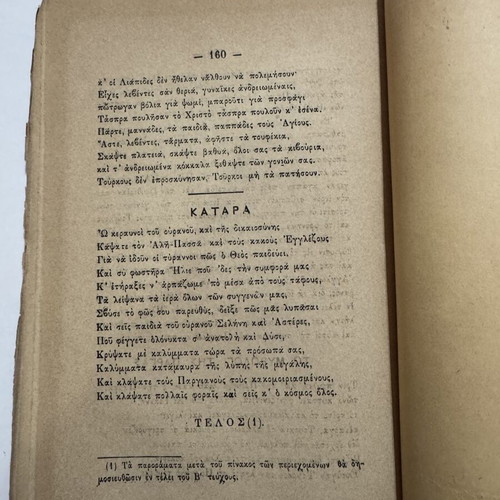 — 160 —
κ' οἱ Λιάπιδες δὲν ἤθελαν νἄλθουν νὰ πολεμήσουν·
Εἶχες λεβέντες σὰν θεριά, γυναῖκες ἀνδρειωμέναις,
πὤτρωγαν βόλια γιὰ ψωμί, μπαροῦτι γιὰ προσφάγι
Τἄσπρα πουλῆσαν τὸ Χριστὸ τἄσπρα πουλοῦν κ' ἐσένα.
Πάρτε, μαννάδες, τὰ παιδιά, παππάδες τοὺς Ἁγίους.
Ἄστε, λεβέντες, τἄρματα, ἀφῆστε τὰ τουφέκια,
Σκάψτε πλατειά, σκάψτε βαθυά, ὅλοι σας τὰ κιβούρια,
καὶ τ' ἀνδρειωμένα κόκκαλα ξιθάψτε τῶν γονιῶν σας.
Τούρκους δὲν ἐπροσκύνησαν, Τοῦρκοι μὴ τὰ πατήσουν.
ΚΑΤΑΡΑ
Ὢ κεραυνοὶ τοῦ οὐρανοῦ, καὶ τῆς δικαιοσύνης
Κάψατε τὸν Ἀλῆ-Πασσᾶ καὶ τοὺς κακοὺς Ἐγγλέζους
Γιὰ νὰ ἰδοῦν οἱ τύραννοι πῶς ὁ Θεὸς παιδεύει.
Καὶ σὺ φωστῆρα Ἥλιε ποῦ 'δες τὴν συμφορά μας
Κ' ἐτήραξες ν' ἁρπάζωμε 'πὸ μέσα ἀπὸ τοὺς τάφους,
Τὰ λείψανα τὰ ἱερὰ ὅλων τῶν συγγενῶν μας,
Σβύσε τὸ φῶς σου παρευθύς, δεῖξε πῶς μᾶς λυπᾶσαι
Καὶ σεῖς παιδιὰ τοῦ οὐρανοῦ Σελήνη καὶ Ἀστέρες,
Ποῦ φέγγετε ὁλόνυκτα σ' ἀνατολὴ καὶ Δύσι,
Κρύψατε μὲ καλύμματα τώρα τὰ πρόσωπα σας,
Καλύμματα κατάμαυρα τῆς λύπης τῆς μεγάλης,
Καὶ κλάψετε τοὺς Παργιανοὺς τοὺς κακομοιριασμένους,
Καὶ κλάψετε πολλαῖς φοραῖς καὶ σεῖς κ' ὁ κόσμος ὅλος.
ΤΕΛΟΣ (1).
(1) Τὰ παροράματα μετὰ τοῦ πίνακος τῶν περιεχομένων θὰ δη-
μοσιευθῶσιν ἐν τέλει τοῦ Β' τεύχους.